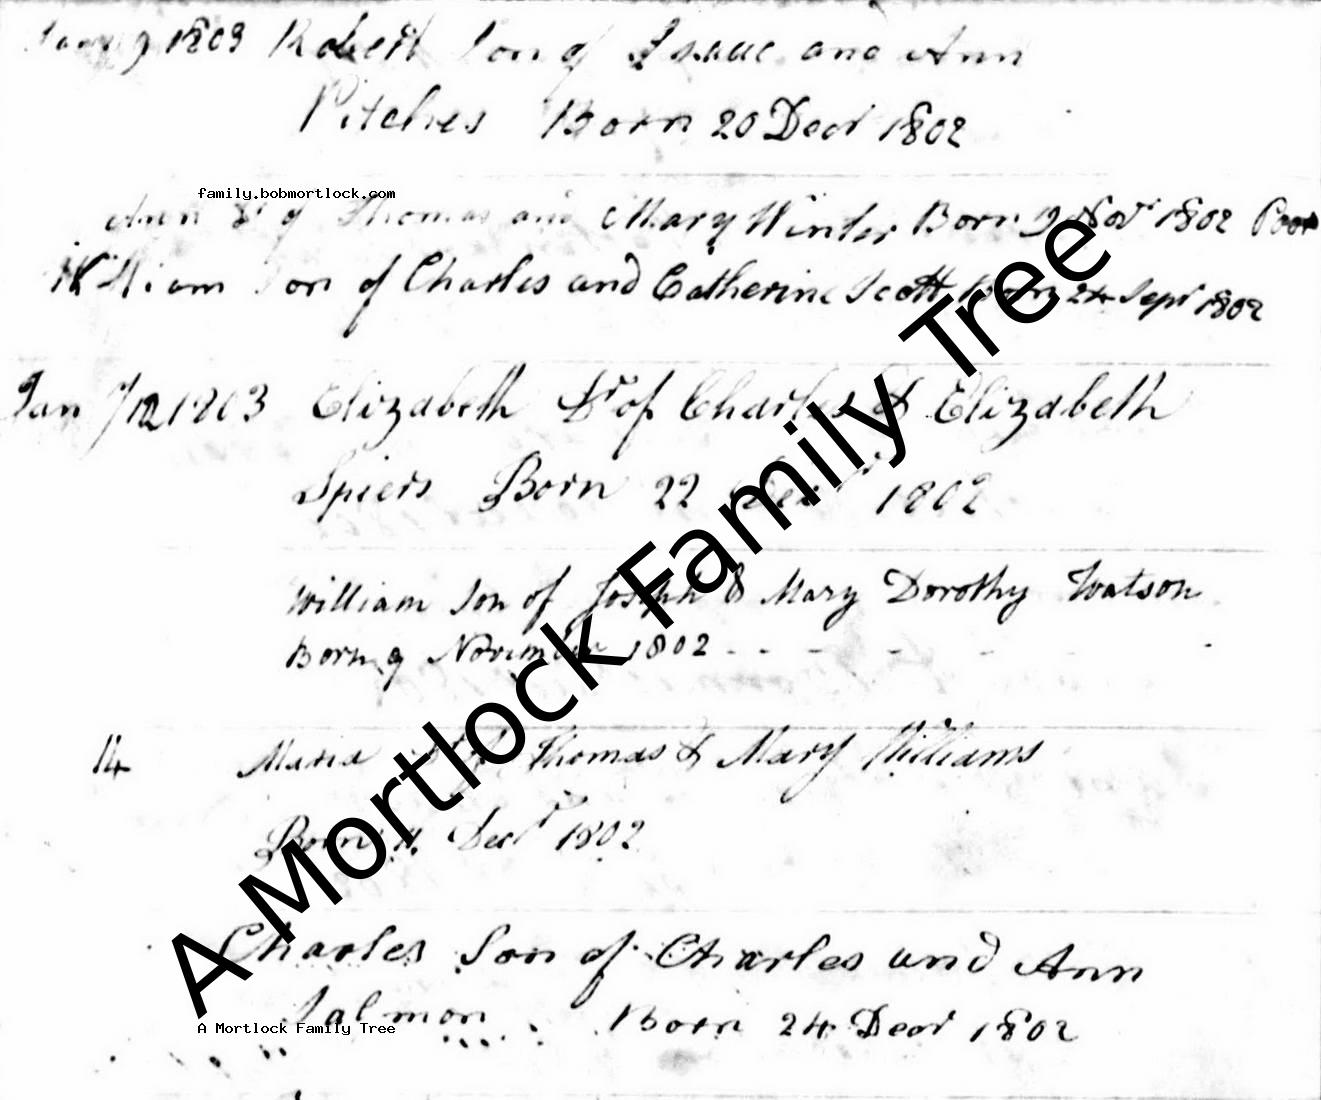 Jany 9 1803 Robert Son of Isaac and Ann
Pitches Born 20 Decr 1802
family.bobmortlock.com
Ann Dr of Thomas and Mary Winter Born 9 Novr 1802 Poor
William Son of Charles and Catherine Scott Born 24 Sepr 1802
Jan 12 1803 Elizabeth Dr of Charles & Elizabeth
Spiers Born 22 Decr 1802
William Son of Joseph & Mary Dorothy Watson
Born 9 November 1802
14 Maria Thomas & Mary Williams
Born 11 Decr 1802
Charles Son of Charles and Ann
Salmon Born 24 Decr 1802
A Mortlock Family Tree
A Mortlock Family Tree